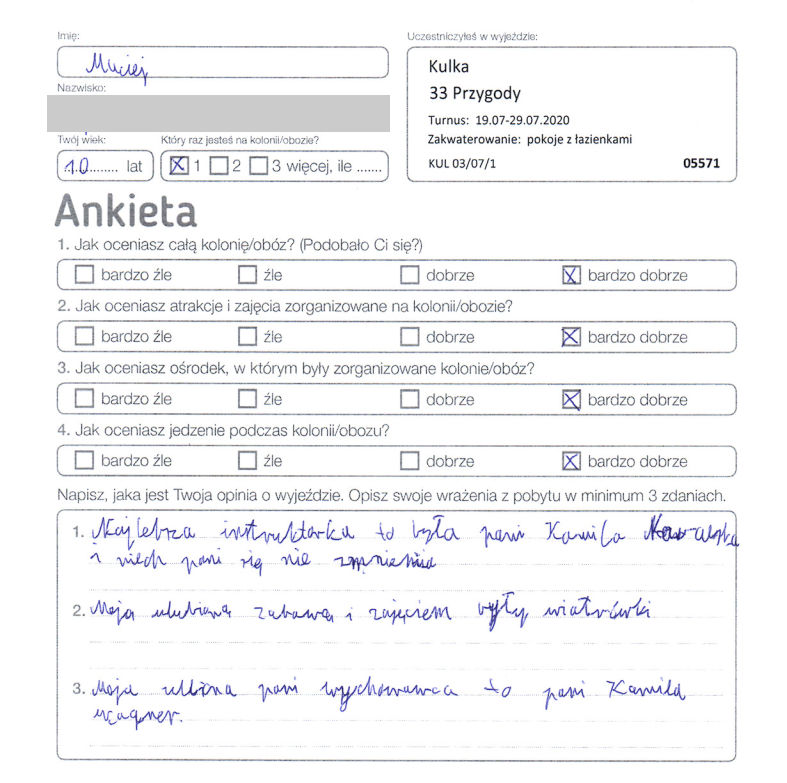 Imię:
Maciej
Nazwisko:
Twój wiek:
10........ lat
Który raz jesteś na kolonii/obozie?
1 2 3 więcej, ile .......
Uczestniczyłeś w wyjeździe:
Kulka
33 Przygody
Turnus: 19.07-29.07.2020
Zakwaterowanie: pokoje z łazienkami
KUL 03/07/1 05571
Ankieta
1. Jak oceniasz całą kolonię/obóz? (Podobało Ci się?)
bardzo źle źle dobrze bardzo dobrze
2. Jak oceniasz atrakcje i zajęcia zorganizowane na kolonii/obozie?
bardzo źle źle dobrze bardzo dobrze
3. Jak oceniasz ośrodek, w którym były zorganizowane kolonie/obóz?
bardzo źle źle dobrze bardzo dobrze
4. Jak oceniasz jedzenie podczas kolonii/obozu?
bardzo źle źle dobrze bardzo dobrze
Napisz, jaka jest Twoja opinia o wyjeździe. Opisz swoje wrażenia z pobytu w minimum 3 zdaniach.
1. Najlebrza instruktorka to była pani Kamila
i niech pani się nie zmnienia
2. Moja ulubiana zabawą i zajęciem były wiatrówki
3. Moja pani wychowawca to pani Kamila
wagner.